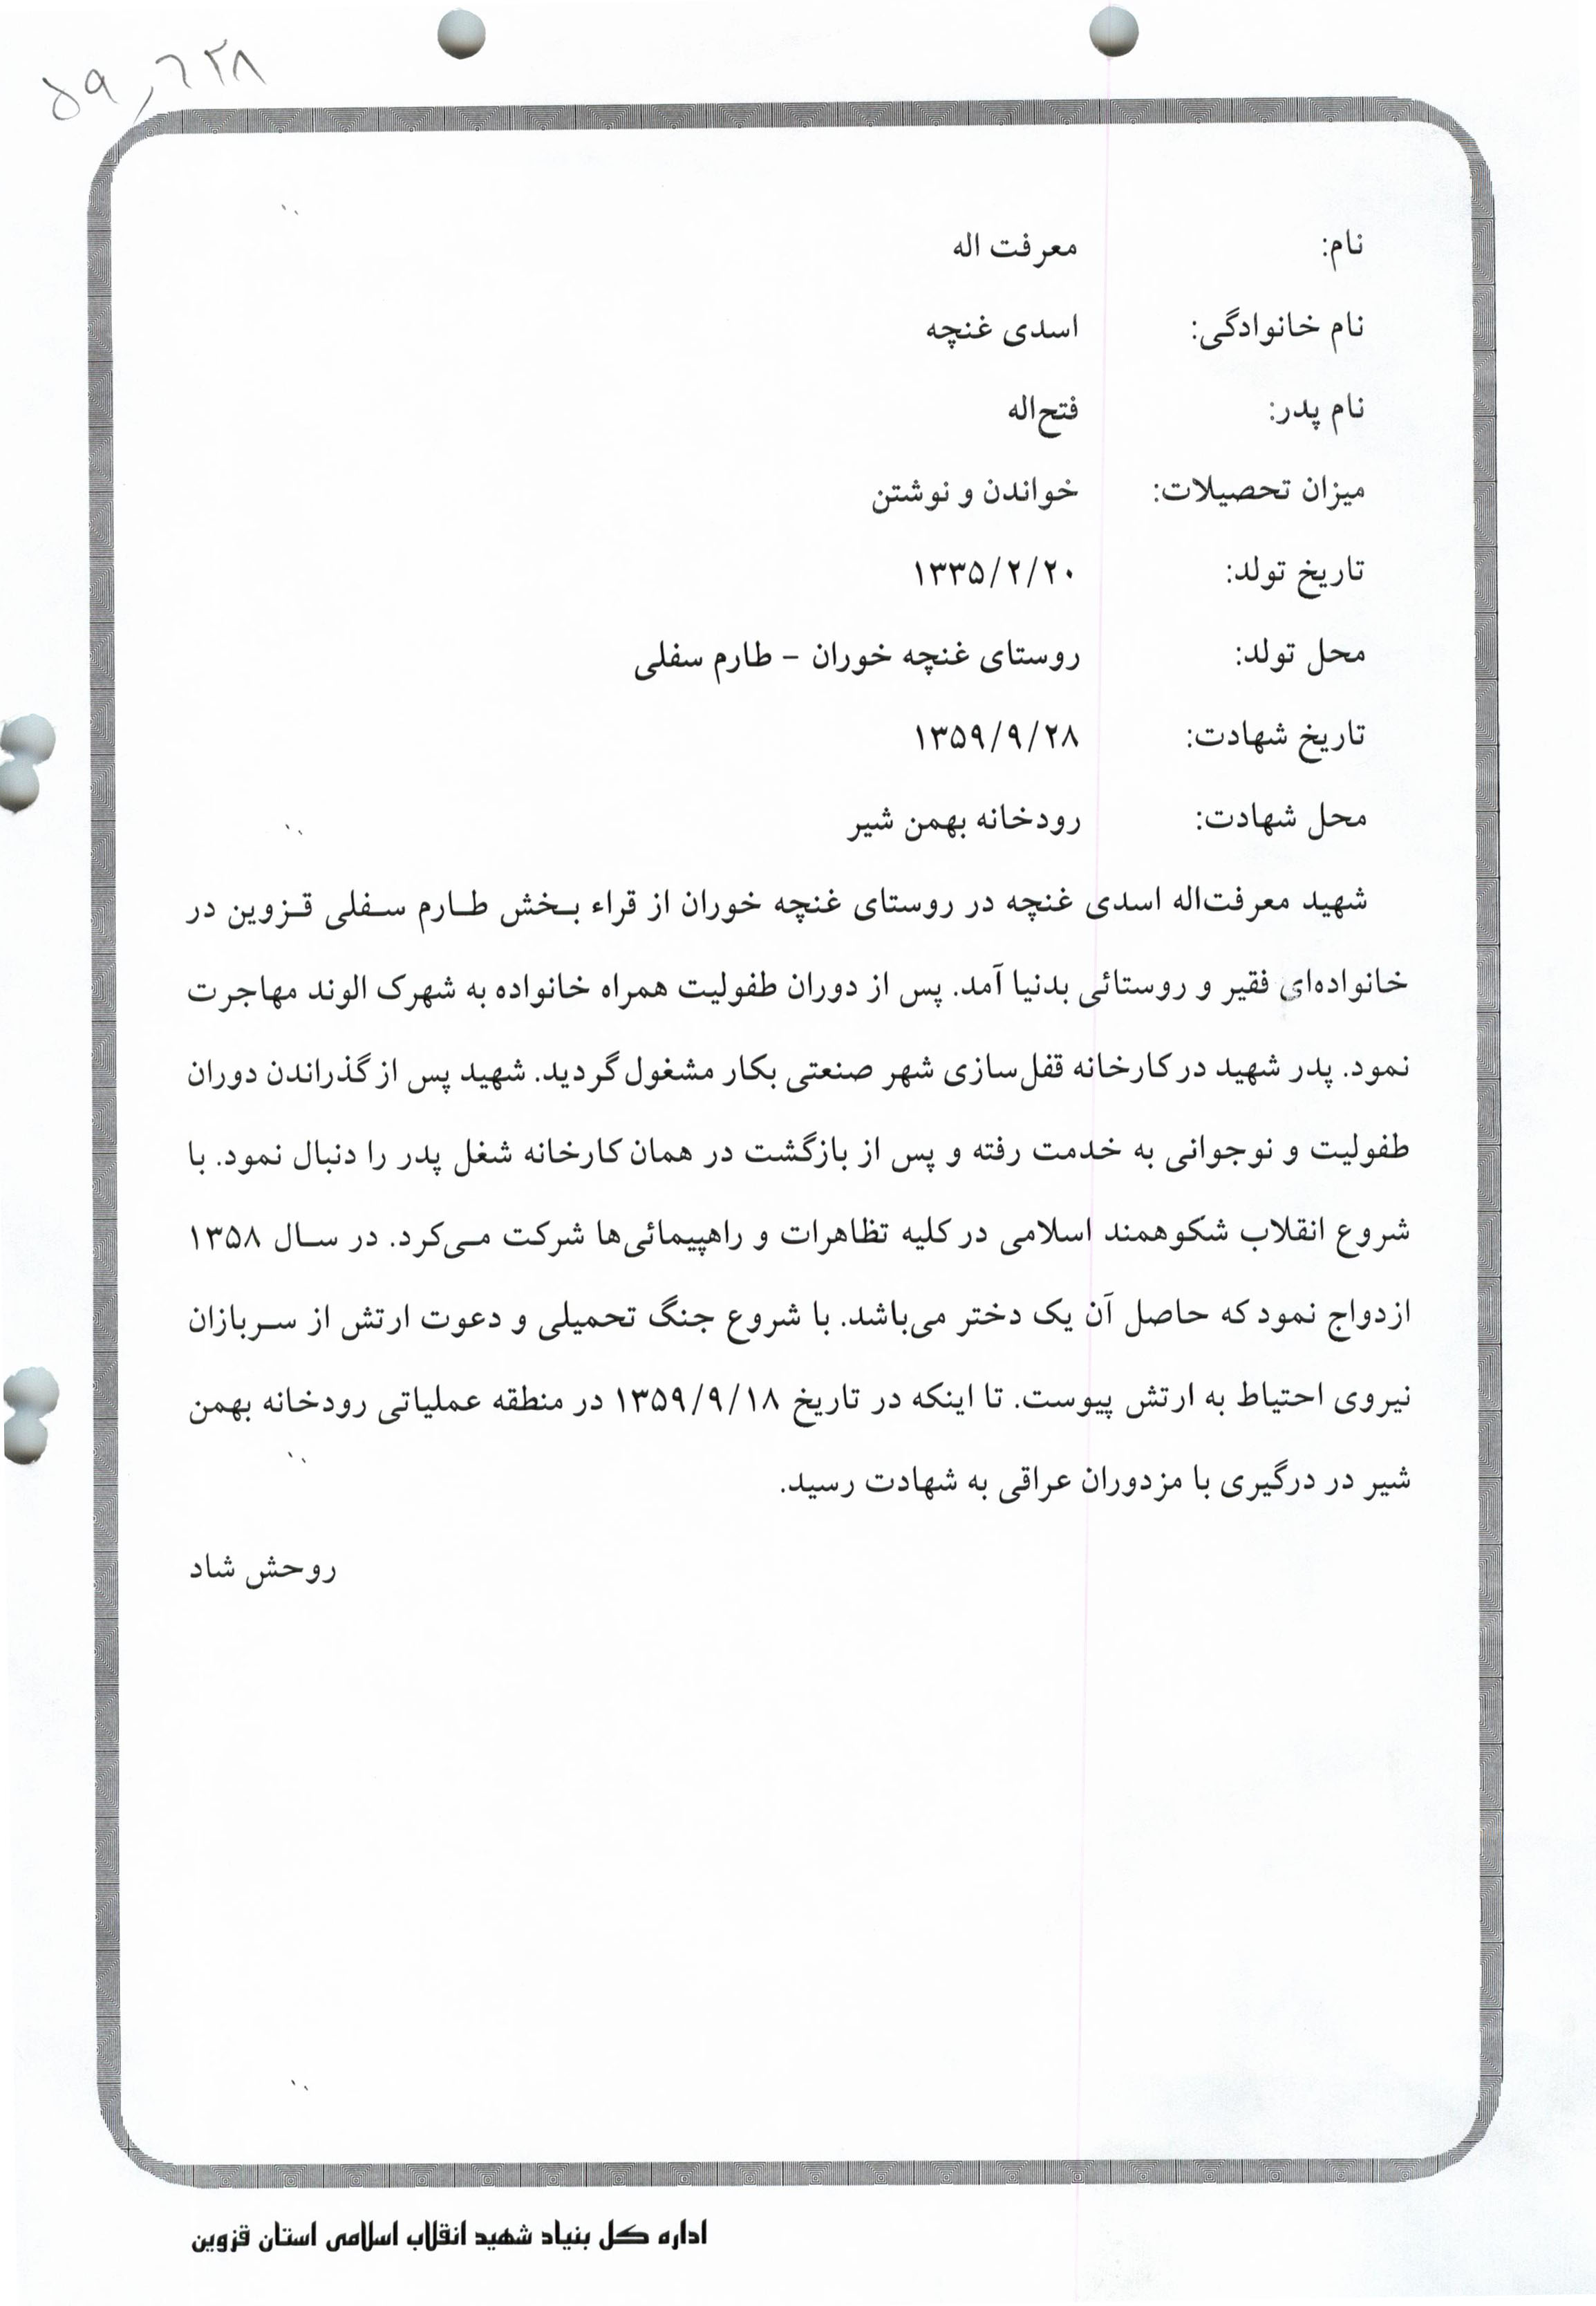 ۵۹٫۶۲۸
نام: معرفت اله
نام خانوادگی: اسدی غنچه
نام پدر: فتح‌اله
میزان تحصیلات: خواندن و نوشتن
تاریخ تولد: ۱۳۳۵/۲/۲۰
محل تولد: روستای غنچه خوران – طارم سفلی
تاریخ شهادت: ۱۳۵۹/۹/۲۸
محل شهادت: رودخانه بهمن شیر
شهید معرفت‌اله اسدی غنچه در روستای غنچه خوران از قراء بخش طارم سفلی قزوین در
خانواده‌ای فقیر و روستائی بدنیا آمد. پس از دوران طفولیت همراه خانواده به شهرک الوند مهاجرت
نمود. پدر شهید در کارخانه قفل‌سازی شهر صنعتی بکار مشغول گردید. شهید پس از گذراندن دوران
طفولیت و نوجوانی به خدمت رفته و پس از بازگشت در همان کارخانه شغل پدر را دنبال نمود. با
شروع انقلاب شکوهمند اسلامی در کلیه تظاهرات و راهپیمائی‌ها شرکت می‌کرد. در سال ۱۳۵۸
ازدواج نمود که حاصل آن یک دختر می‌باشد. با شروع جنگ تحمیلی و دعوت ارتش از سربازان
نیروی احتیاط به ارتش پیوست. تا اینکه در تاریخ ۱۳۵۹/۹/۱۸ در منطقه عملیاتی رودخانه بهمن
شیر در درگیری با مزدوران عراقی به شهادت رسید.
روحش شاد
اداره کل بنیاد شهید انقلاب اسلامی استان قزوین